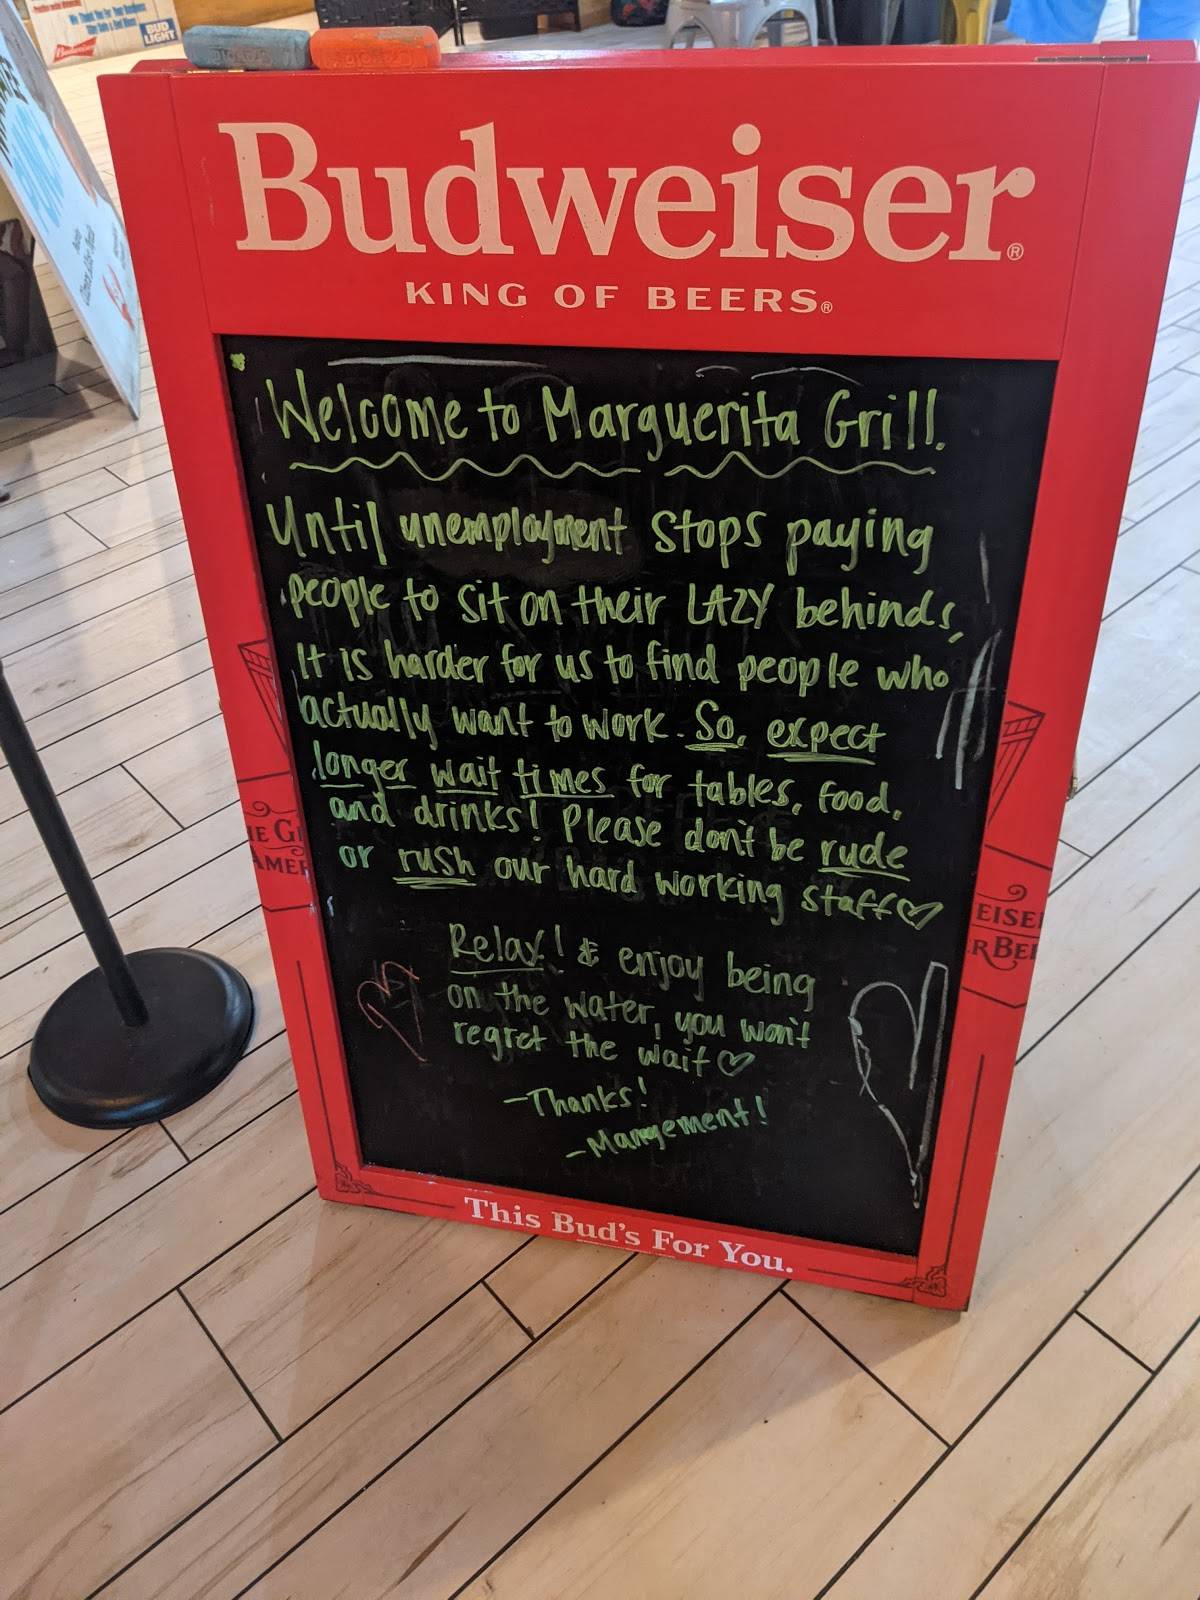 BUD LIGHT
Budweiser®
KING OF BEERS®
Welcome to Marguerita Grill.
Until unemployment stops paying
people to sit on their LAZY behinds,
It is harder for us to find people who
actually want to work. So, expect
longer wait times for tables, food,
and drinks! Please don't be rude
or rush our hard working staff♡
Relax! & enjoy being
on the water, you won't
regret the wait♡
-Thanks!
-Mangement!
This Bud's For You.